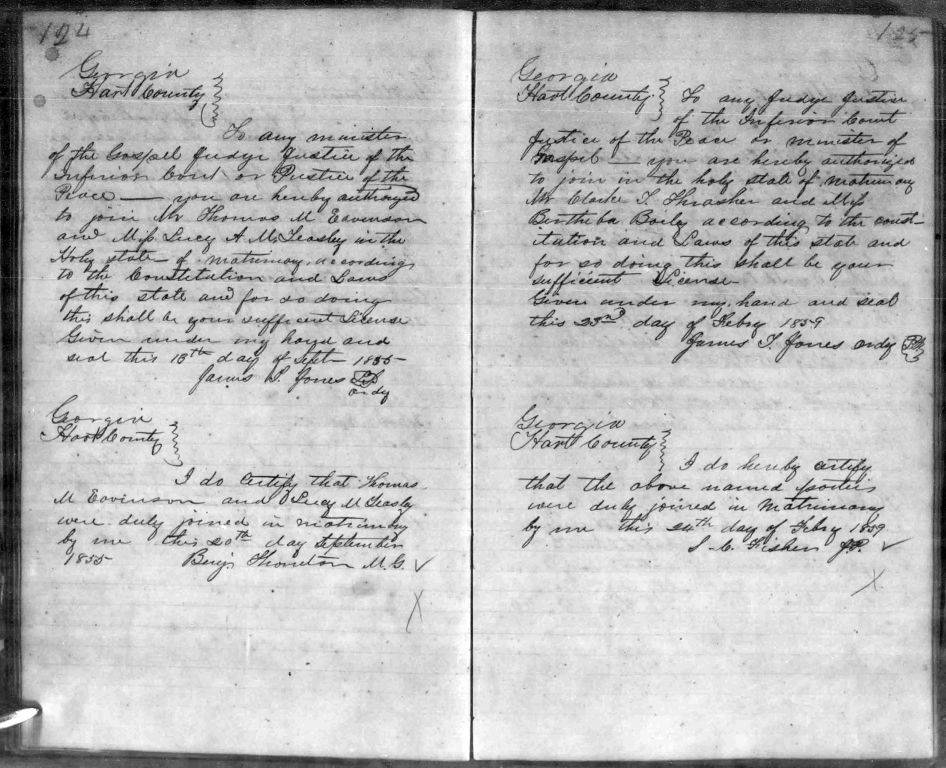 124
Georgia
Hart County
To any minister
of the Gospel Judge Justice of the
Inferior Cort or Justice of the
Peace — you are hereby authorized
to join Mr Thomas M Eavinson
and Miss Lucy A M Teasley in the
Holy state of matrimony according
to the Constitution and Laws
of this state and for so doing
this shall be your sufficent License
Given under my hand and
seal this 18th day of Sept 1855
James T. Jones
ordy
Georgia
Hart County
I do certify that Thomas
M Eavinson and Lucy M Teasley
were duly joined in matrimony
by me this 20th day September
1855 Benj Thornton M. G.
125
Georgia
Hart County
To any Judge Justice
of the Inferior Court
Justice of the Peace or minister of
Gospel — you are hereby authorized
to join in the holy state of matrimony
Mr Clarke T. Thrasher and Miss
Birthiba Baily according to the const-
itution and Laws of this state and
for so doing this shall be your
sufficient License
Given under my hand and seal
this 23rd day of Febry 1859
James T. Jones ordy
Georgia
Hart County
I do hereby certify
that the above named parties
were duly joined in Matrimony
by me this 24th day of Febry 1859
S. C. Fisher J.P.